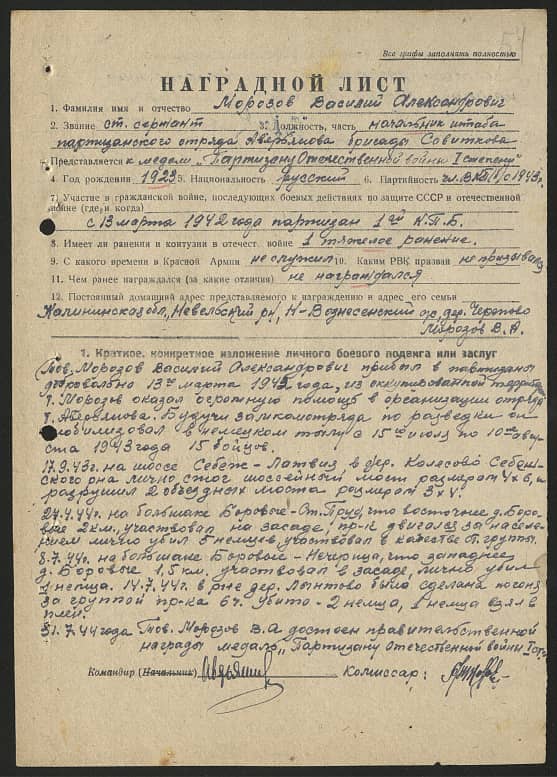 Все графы заполнять полностью
НАГРАДНОЙ ЛИСТ
1. Фамилия имя и отчество Морозов Василий Александрович
2. Звание ст. сержант 3. Должность, часть начальник штаба
партизанского отряда бригады
Представляется к медали „Партизану Отечественной войны I степени"
4 Год рождения 1923 5. Национальность русский 6. Партийность 1943г.
7) Участие в гражданской войне, последующих боевых действиях по защите СССР и отечественной
войне (где и когда)
с 13 марта 1942 года партизан 1ой К.П.Б.
8. Имеет ли ранения и контузии в отечест. войне 1 тяжелое ранение.
9. С какого времени в Красной Армии не служил 10. Каким РВК призван не призывался
11. Чем ранее награждался (за какие отличия) не награждался
12. Постоянный домашний адрес представляемого к награждению и адрес его семьи
Калининская обл., Невельский рн, Н-Вознесенский с/с, дер.
Морозов В.А.
1. Краткое, конкретное изложение личного боевого подвига или заслуг
Тов. Морозов Василий Александрович прибыл в партизаны
добровольно 13го марта 1942 года, из оккупированной
т. Морозов оказал огромную помощь в организации отряда
Будучи зам. ком. отряда по разведки он
мобилизовал в немецком тылу с 15го июля по 10ое авгу-
ста 1943 года 15 бойцов.
17.9.43г. на шоссе Себеж-Латвия в дер. Колесово Себеж-
ского рна лично сжог шоссейный мост размером 4х6, и
разрушил 2 объездных моста размером 3х4.
на большаке Боровые- что восточнее д. Боро-
вые 2км, участвовал на засаде, пр-к двигался за населе-
нием лично убил 5 немцев, участвовал в качестве группы.
8.7.44г. на большаке Боровые-Нечерица, что западнее
д. Боровые 1,5 км. участвовал в засаде, лично убил
1 немца. 14.7.44г. в рне дер. была сделана погоня
за группой пр-ка 6ч. убито-2 немца, 1 немца взял в
плен.
7.44 года Тов. Морозов В.А достоен правительственной
награды медаль „Партизану Отечественной войны I ст."
Командир (Начальник) Комиссар: